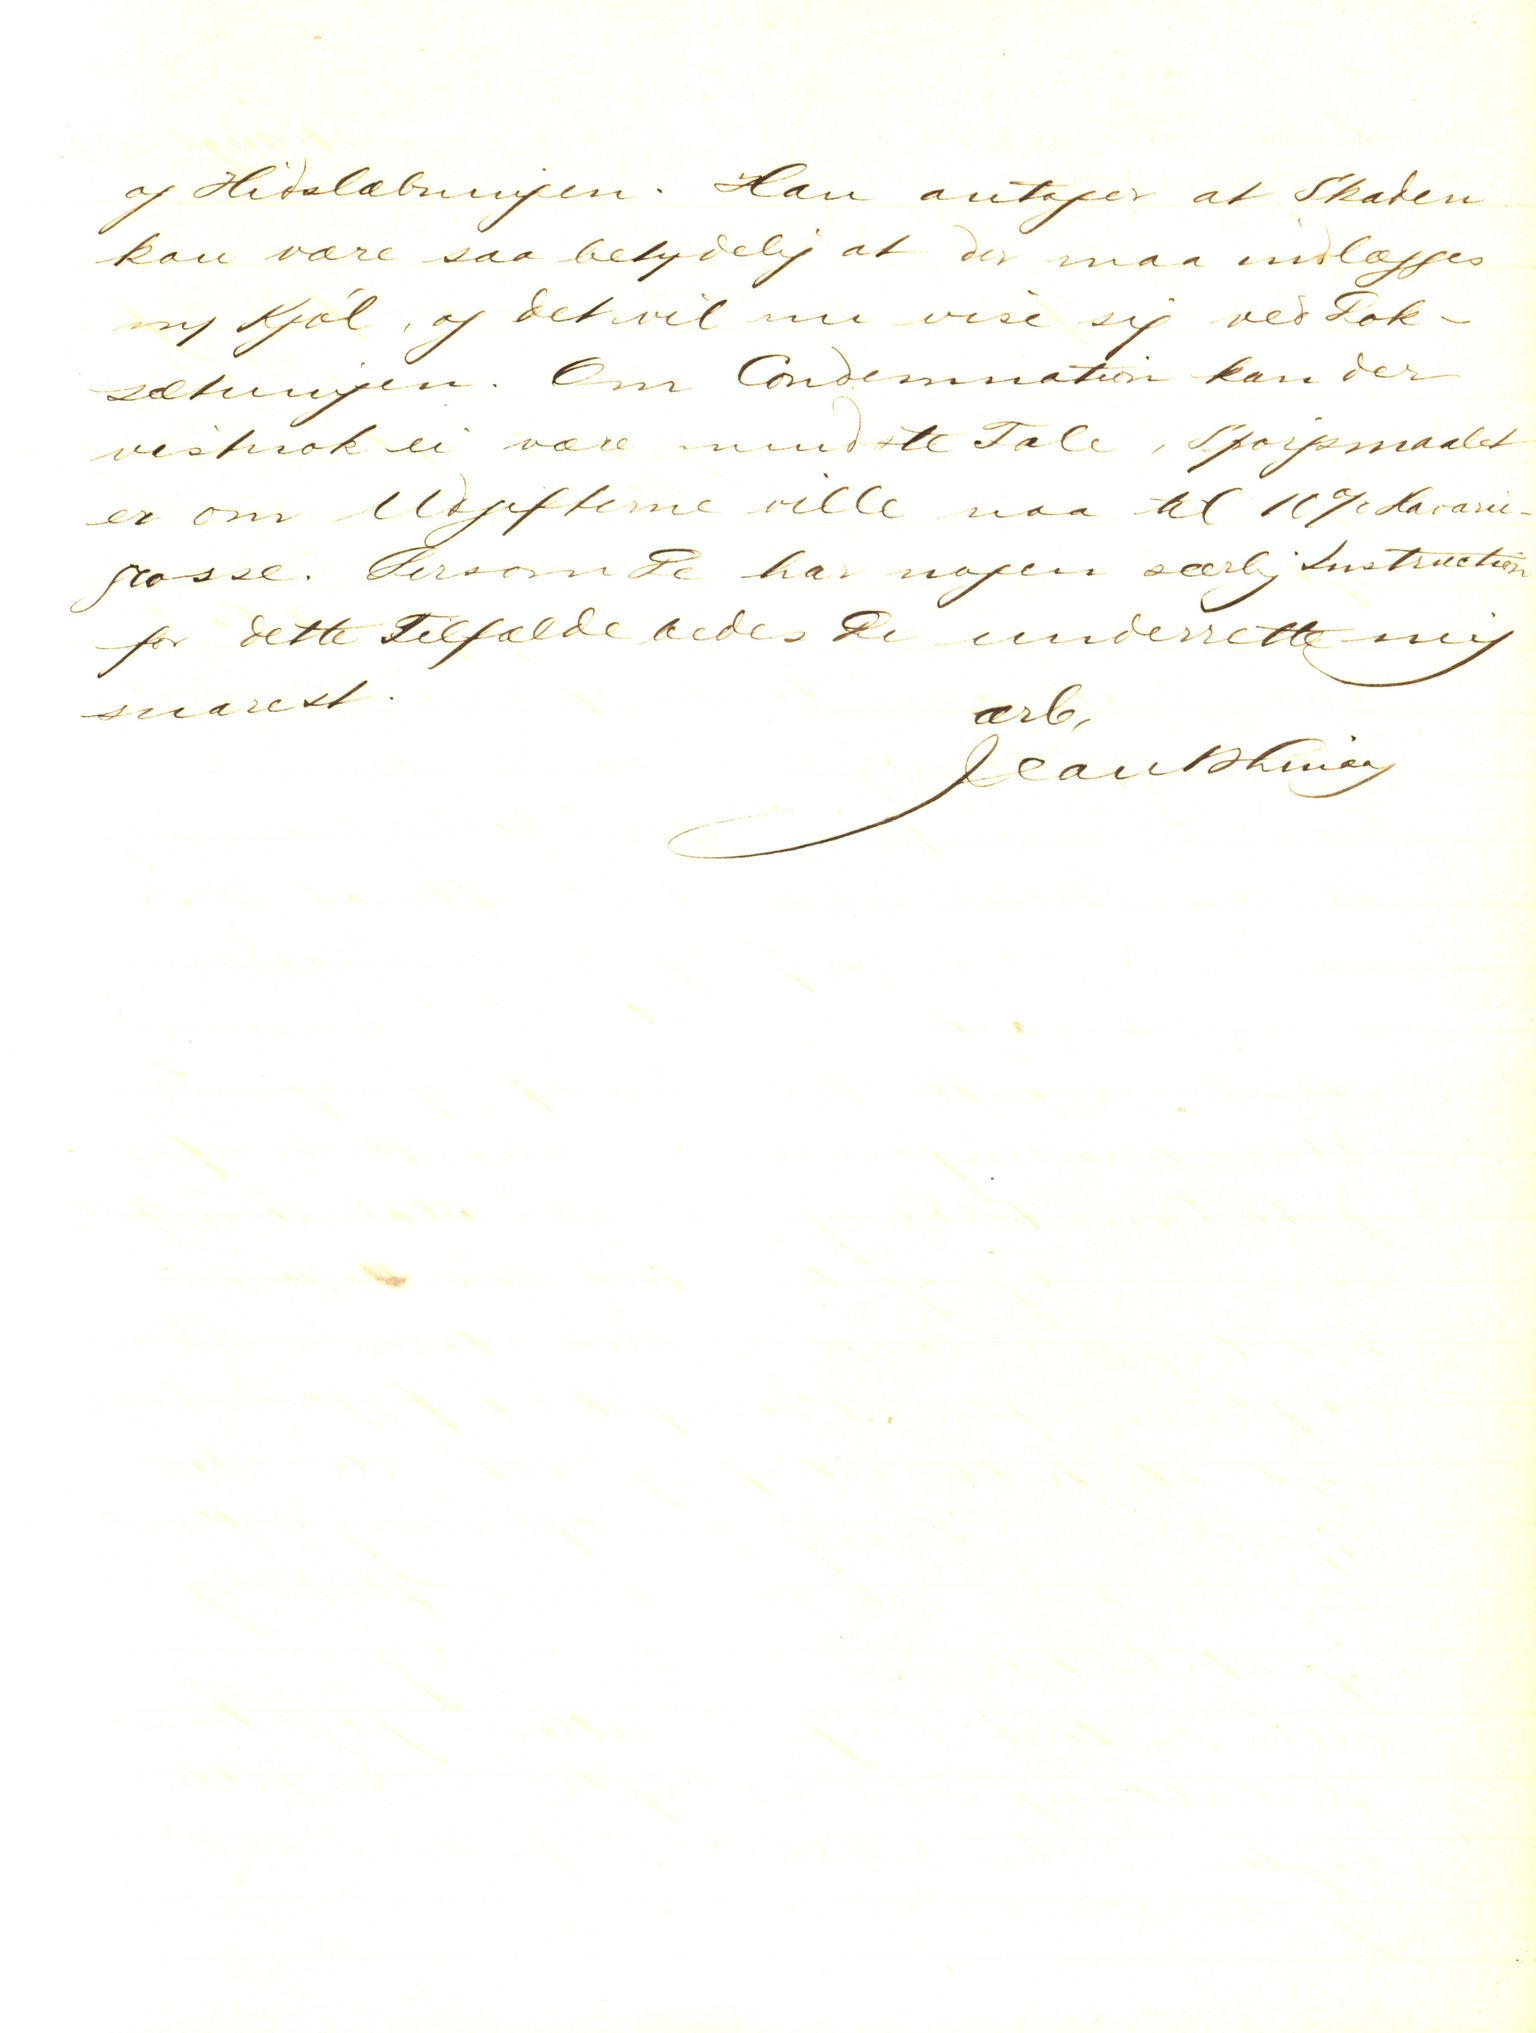 og Hidslæbningen. Han antager at Skaden
kan være saa betydelig at der maa indlægges
ny Kjøl, og det vil nu vise sig ved Dok-
sætningen. Om Condemnation kan der
vistnok ei være mindste Tale, Spørgsmaalet
er om Udgifterne ville naa til 10% Havarie-
grosse. Dersom De har nogen særlig Instruction
for dette Tilfælde bedes De underrette mig
snarest.
ærb,
Jean